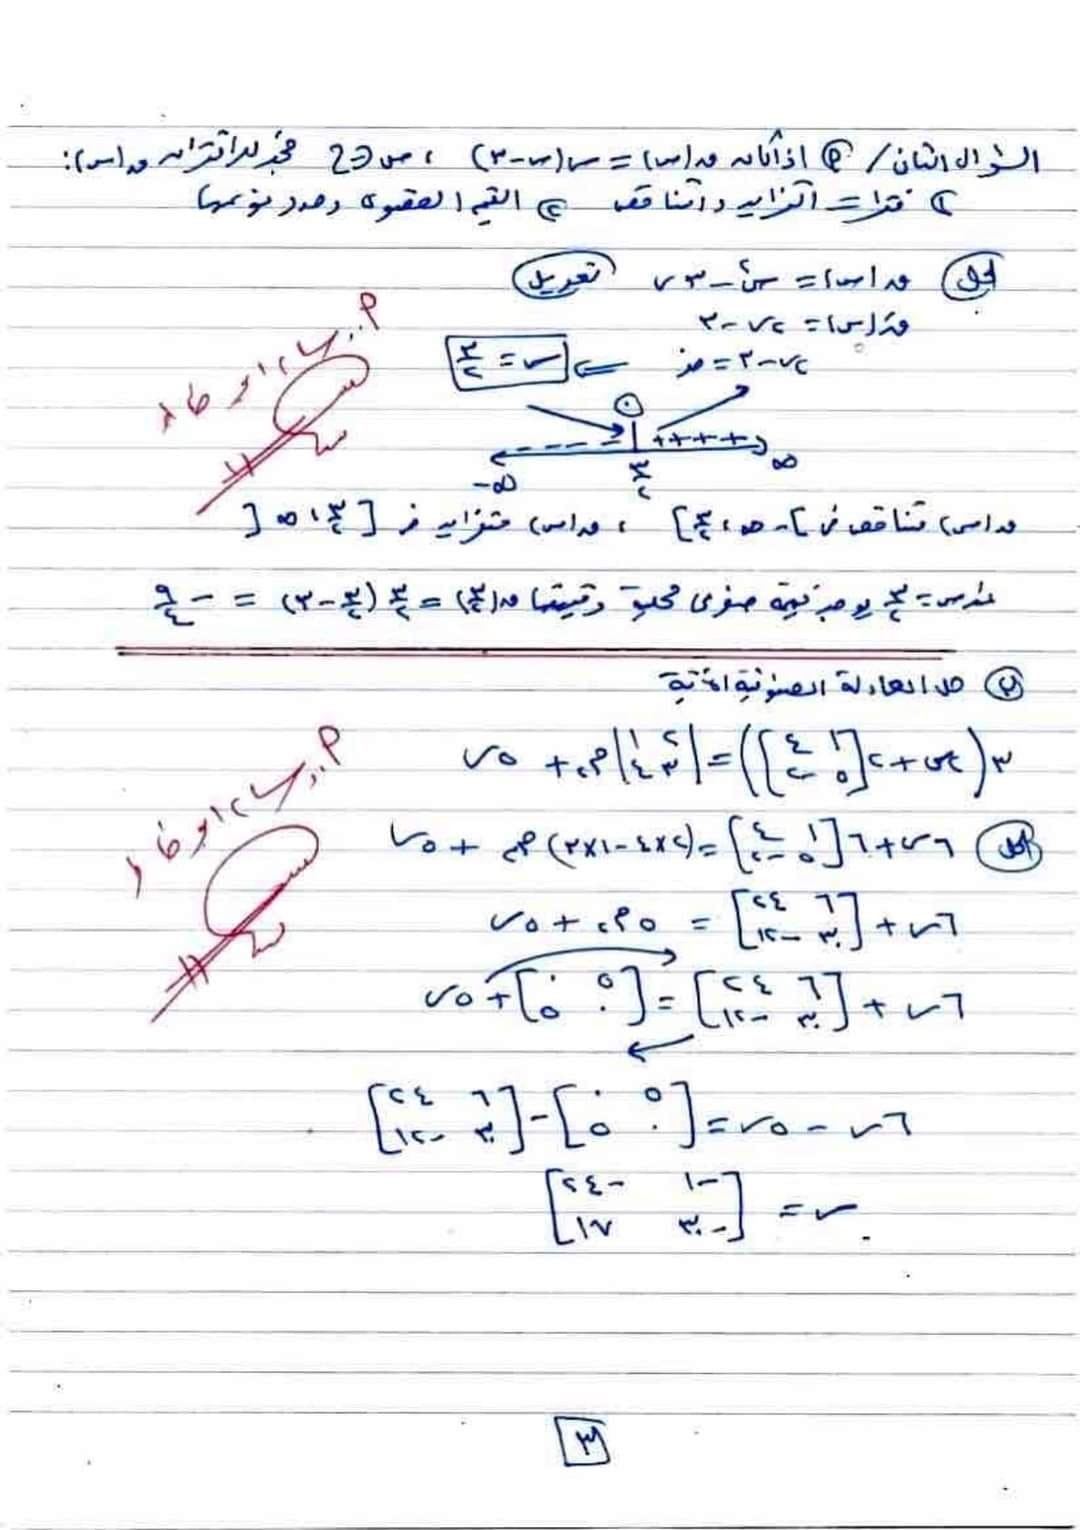 السؤال الثاني / P اذا كان ق(س) = س(س-٣) ، س ∈ ح فجد للاقتران ق(س):
١) فترات التزايد والتناقص ٢) القيم القصوى وحدد نوعها
الحل ق(س) = س² - ٣س تعديل
قَ(س) = ٢س - ٣
٢س - ٣ = صفر ⇐ س = ٣/٢
٠
- - - - + + + +
-∞ ٣/٢ ∞
ق(س) متناقص في ]-∞ ، ٣/٢] ، ق(س) متزايد في [٣/٢ ، ∞[
عند س = ٣/٢ يوجد قيمة صغرى محلية وقيمتها ق(٣/٢) = ٣/٢ (٣/٢ - ٣) = -٩/٤
ب) حل المعادلة المصفوفية الآتية
٣(٢س + ٢[١ ٤ ; ٥ -٢]) = |٢ ١ ; ٣ ٤| م٢ + ٥س
الحل ٦س + ٦[١ ٤ ; ٥ -٢] = (٢×٤ - ١×٣) م٢ + ٥س
٦س + [٦ ٢٤ ; ٣٠ -١٢] = ٥م٢ + ٥س
٦س + [٦ ٢٤ ; ٣٠ -١٢] = [٥ ٠ ; ٠ ٥] + ٥س
٦س - ٥س = [٥ ٠ ; ٠ ٥] - [٦ ٢٤ ; ٣٠ -١٢]
س = [-١ -٢٤ ; -٣٠ ١٧]
٣